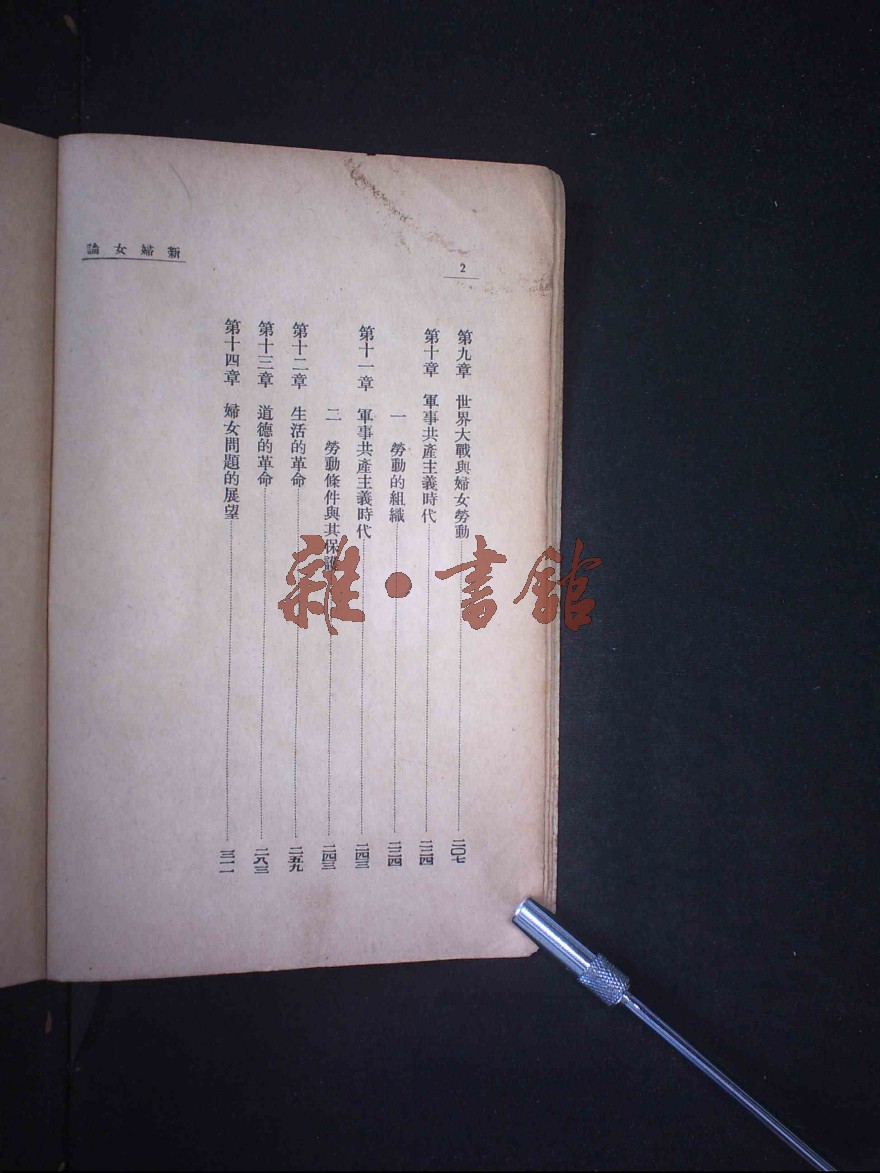 新婦女論
2
第九章 世界大戰與婦女勞動 二〇七
第十章 軍事共產主義時代 二二四
一 勞動的組織 二二四
第十一章 軍事共產主義時代 二四三
二 勞動條件與其保護 二四三
第十二章 生活的革命 二五九
第十三章 道德的革命 二八三
第十四章 婦女問題的展望 三一一
雜·書館